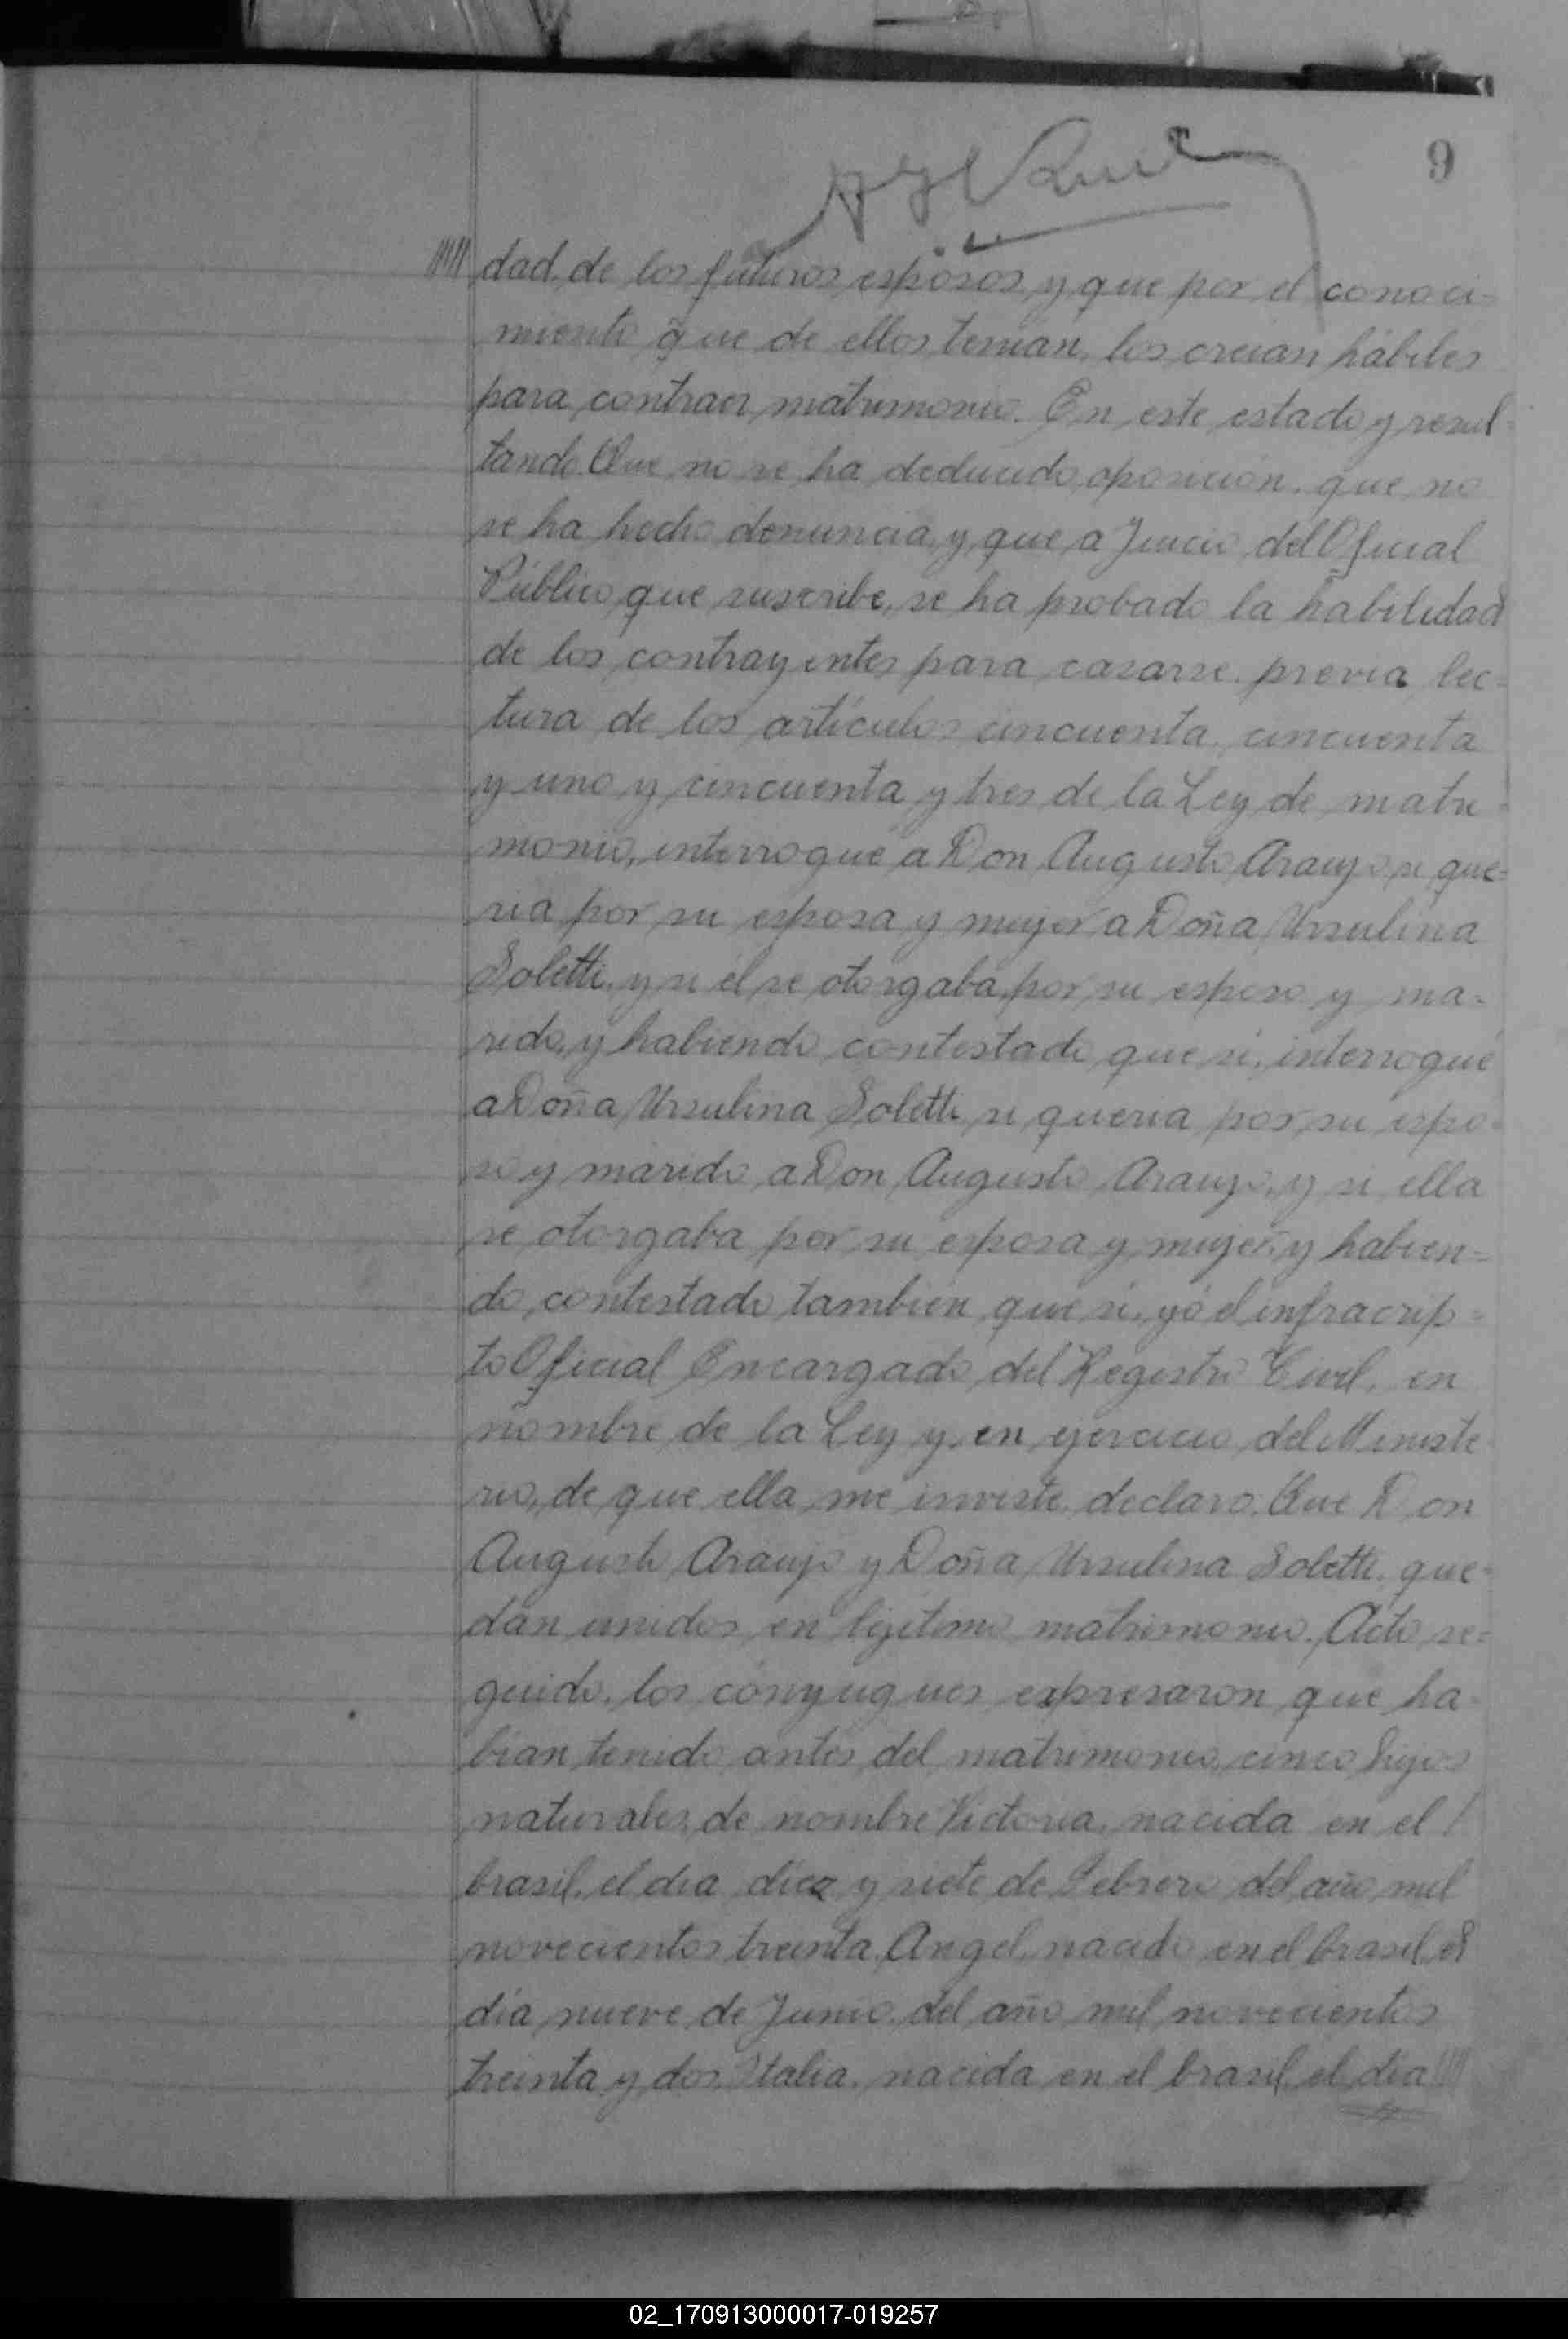 9
dad, de los futuros esposos, y que por el conoci-
miento que de ellos tenian, los creian hábiles
para contraer matrimonio. En este estado y resul-
tando: Que no se ha deducido oposición, que no
se ha hecho denuncia, y que a Juicio del Oficial
Público que suscribe, se ha probado la habilidad
de los contrayentes para casarse, previa lec-
tura de los artículos cincuenta, cincuenta
y uno y cincuenta y tres de la Ley de matri-
monio, interrogué a Don Augusto Araujo, si que-
ria por su esposa y mujer a Doña Ursulina
Soletti, y si él se otorgaba por su esposo y ma-
rido, y habiendo contestado que si, interrogué
a Doña Ursulina Soletti si queria por su espo-
so y marido a Don Augusto Araujo, y si ella
se otorgaba por su esposa y mujer, y habien-
do contestado también que si, yó el infracrip-
to Oficial Encargado del Registro Civil, en
nombre de la Ley y en ejercicio del Ministe
rio, de que ella me inviste, declaro: Que Don
Augusto Araujo y Doña Ursulina Soletti, que-
dan unidos en lijitimo matrimonio. Acto se-
guido, los conyugues expresaron que ha-
bian tenido antes del matrimonio, cinco hijos
naturales, de nombre Victoria, nacida en el
brasil, el dia diez y siete de Febrero del año mil
novecientos treinta, Angel, nacido en el brasil, el
día nueve de Junio del año mil novecientos
treinta y dos, Italia, nacida en el brasil, el dia
02_170913000017-019257